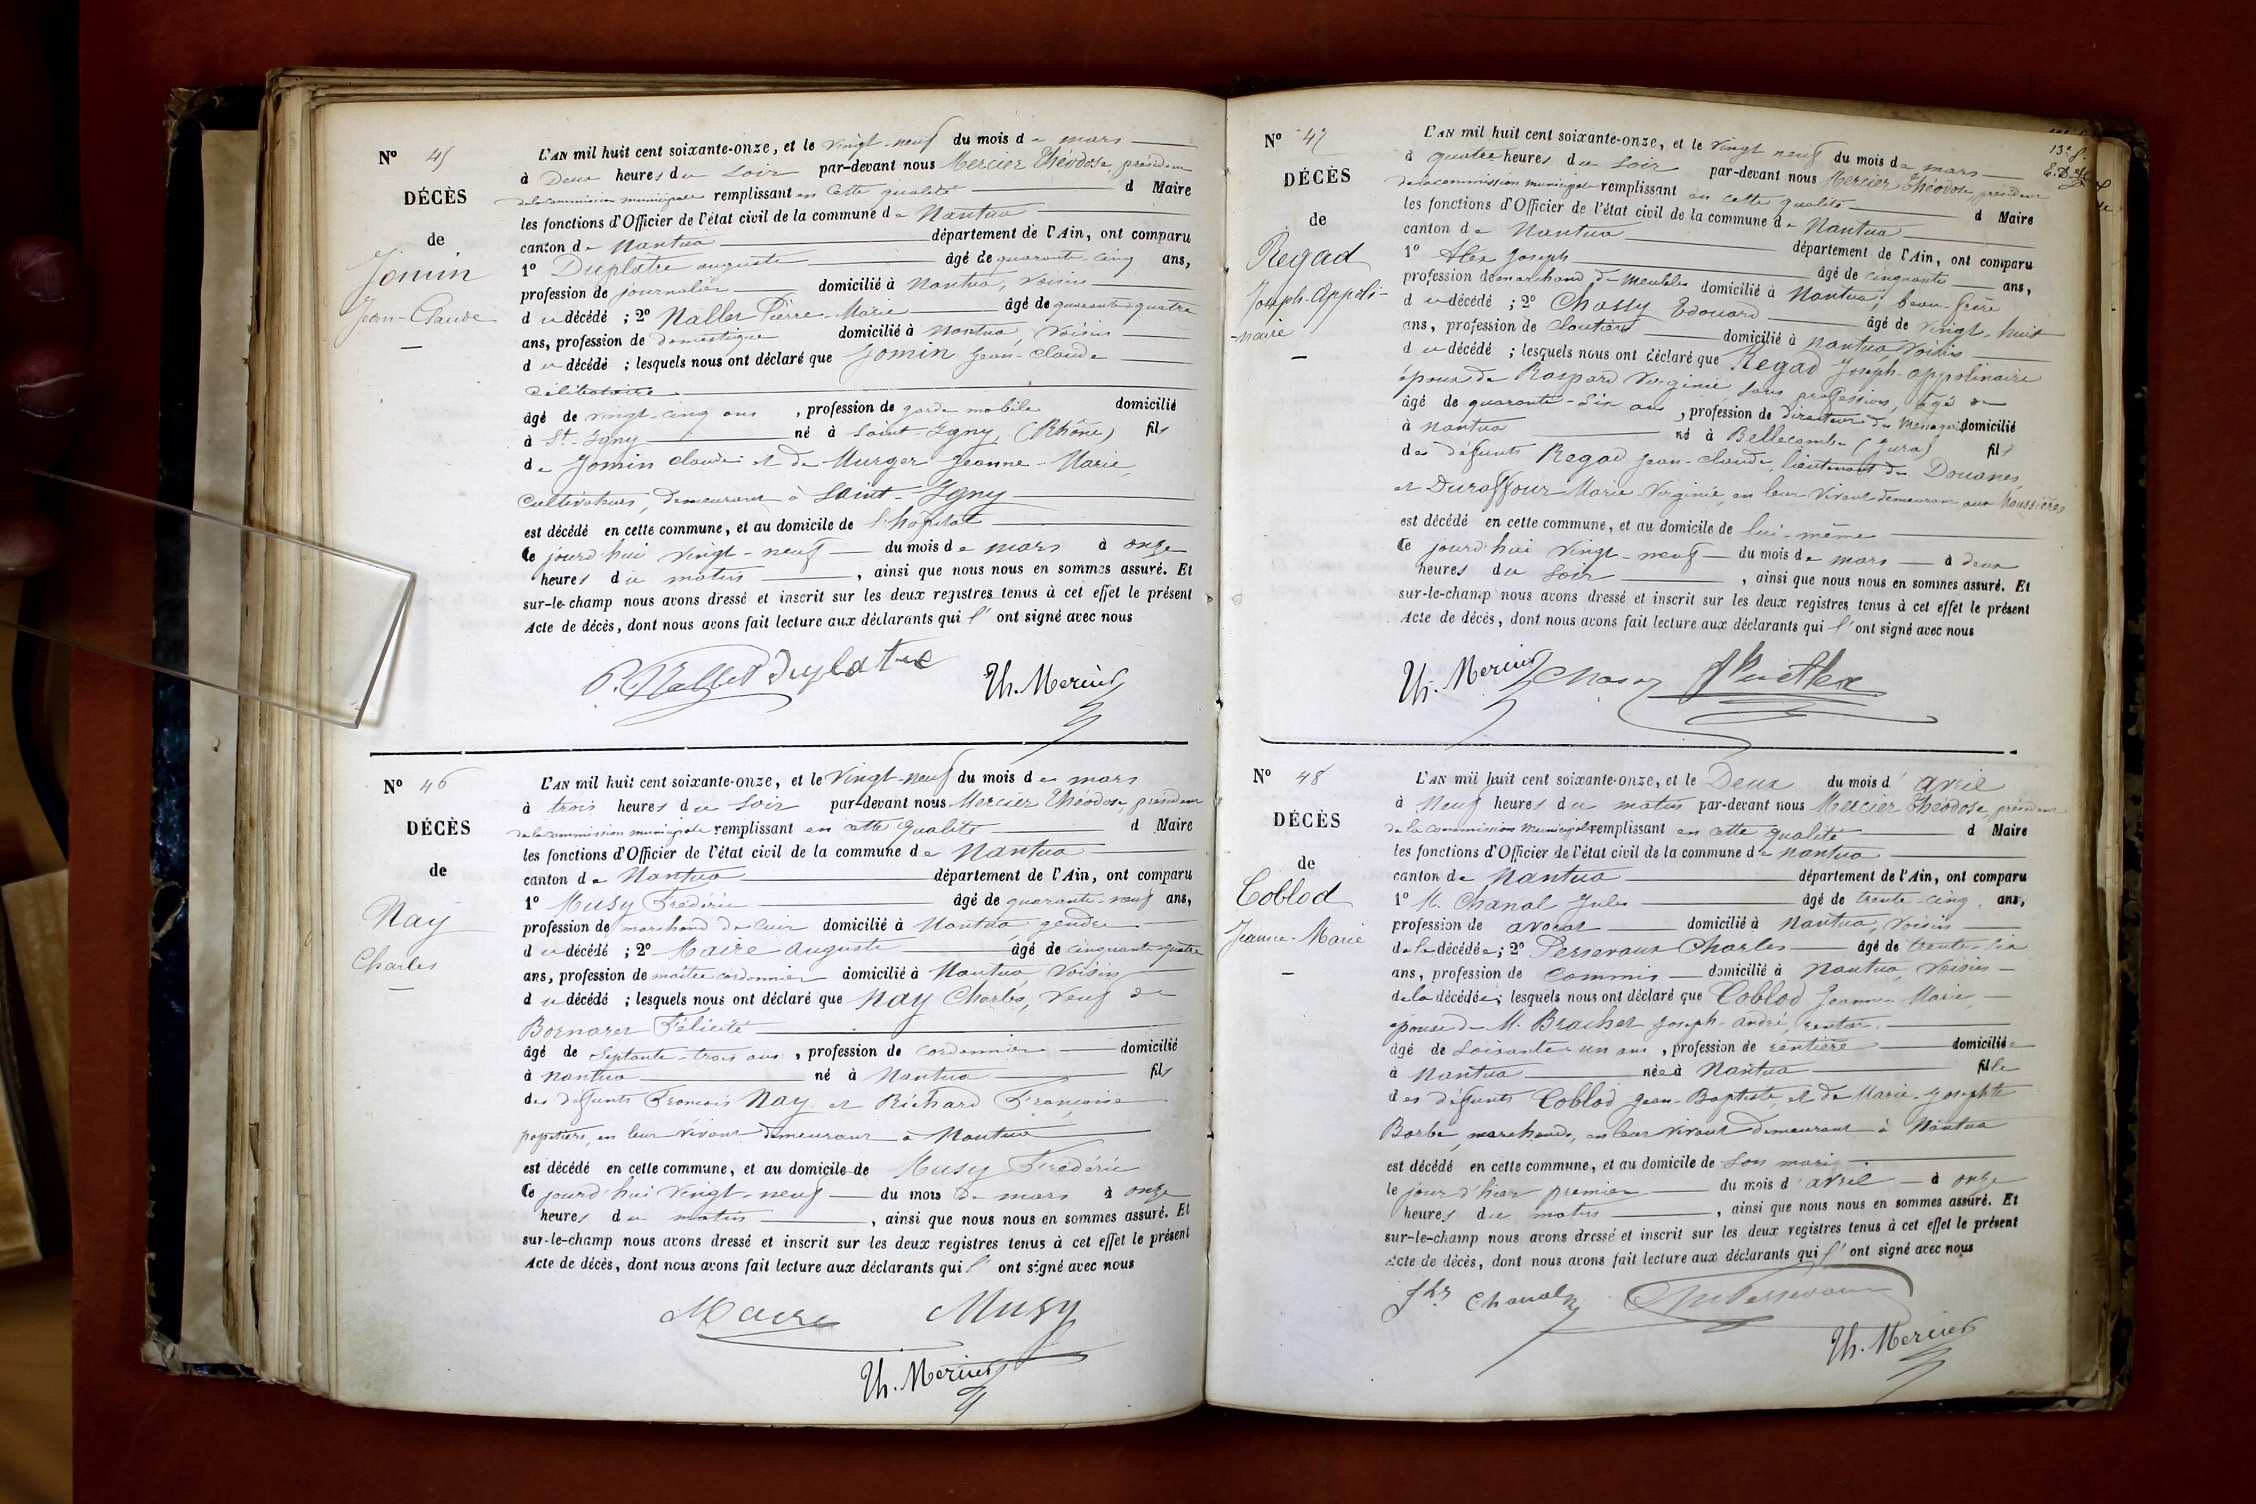 N° 45
DÉCÈS
de
Jomin
Jean-Claude
L'AN mil huit cent soixante-onze, et le vingt-neuf du mois de mars
à Deux heures du Soir par-devant nous Mercier Théodose, président
de la commission municipale remplissant en cette qualité d Maire
les fonctions d'Officier de l'état civil de la commune de Nantua
canton de Nantua département de l'Ain, ont comparu
1° Duplatre auguste âgé de quarante-cinq ans,
profession de journalier domicilié à Nantua, Voisin
du décédé ; 2° Nallet Pierre-Marie âgé de quarante-quatre
ans, profession de domestique domicilié à Nantua, Voisin
du décédé ; lesquels nous ont déclaré que Jomin Jean-Claude
Célibataire
âgé de vingt-cinq ans , profession de garde mobile domicilié
à St-Igny né à Saint-Igny, (Rhône) fils
de Jomin Claude et de Murger Jeanne-Marie,
cultivateurs, demeurant à Saint-Igny
est décédé en cette commune, et au domicile de l'hôpital
Ce jourd'hui vingt-neuf du mois de mars à onze
heures du matin , ainsi que nous nous en sommes assuré. Et
sur-le-champ nous avons dressé et inscrit sur les deux registres tenus à cet effet le présent
Acte de décès, dont nous avons fait lecture aux déclarants qui l' ont signé avec nous
P. Nallet Duplatre Th. Mercier
N° 46
DÉCÈS
de
Nay
Charles
L'AN mil huit cent soixante-onze, et le Vingt-neuf du mois de mars
à trois heures du Soir par-devant nous Mercier Théodose, président
de la commission municipale remplissant en cette qualité d Maire
les fonctions d'Officier de l'état civil de la commune de Nantua
canton de Nantua département de l'Ain, ont comparu
1° Musy Frédéric âgé de quarante-neuf ans,
profession de marchand de Cuir domicilié à Nantua, gendre
du décédé ; 2° Maire auguste âgé de cinquante-quatre
ans, profession de maître cordonnier domicilié à Nantua, Voisin
du décédé ; lesquels nous ont déclaré que Nay Charles, Veuf de
Félicité
âgé de Septante-trois ans , profession de cordonnier domicilié
à Nantua né à Nantua fils
des défunts François Nay et Richard Françoise
papetiers, en leur vivant demeurant à Nantua
est décédé en cette commune, et au domicile de Musy Frédéric
Ce jourd'hui Vingt-neuf du mois de mars à onze
heures du matin , ainsi que nous nous en sommes assuré. Et
sur-le-champ nous avons dressé et inscrit sur les deux registres tenus à cet effet le présent
Acte de décès, dont nous avons fait lecture aux déclarants qui l' ont signé avec nous
Maire Musy
Th. Mercier
13e f.
N° 47
DÉCÈS
de
Regad
Joseph-Appoli-
-naire
L'AN mil huit cent soixante-onze, et le Vingt neuf du mois de mars
à quatre heures du Soir par-devant nous Mercier Théodose, président
de la commission municipale remplissant en cette qualité d Maire
les fonctions d'Officier de l'état civil de la commune de Nantua
canton de Nantua département de l'Ain, ont comparu
1° Alex Joseph âgé de cinquante ans,
profession de marchand de meubles domicilié à Nantua, beau-frère
du décédé ; 2° Chassy Edouard âgé de Vingt-huit
ans, profession de cloutier domicilié à Nantua, Voisin
du décédé ; lesquels nous ont déclaré que Regad Joseph-appolinaire
époux de Virginie, sans profession, âgé de
âgé de quarante-six ans , profession de directeur de Ménagerie domicilié
à Nantua né à Bellecombe (Jura) fils
des défunts Regad Jean-Claude, lieutenant de Douanes,
et Duraffour Marie Virginie, en leur Vivant demeurant aux Moussières
est décédé en cette commune, et au domicile de lui-même
Ce jourd'hui Vingt-neuf du mois de mars à deux
heures du Soir , ainsi que nous nous en sommes assuré. Et
sur-le-champ nous avons dressé et inscrit sur les deux registres tenus à cet effet le présent
Acte de décès, dont nous avons fait lecture aux déclarants qui l' ont signé avec nous
Th. Mercier Chassy Alex
N° 48
DÉCÈS
de
Coblod
Jeanne-Marie
L'AN mil huit cent soixante-onze, et le Deux du mois d' avril
à Neuf heures du matin par-devant nous Mercier Théodose, président
de la commission municipale remplissant en cette qualité d Maire
les fonctions d'Officier de l'état civil de la commune de Nantua
canton de Nantua département de l'Ain, ont comparu
1° M. Chanal Jules âgé de trente-cinq ans,
profession de avocat domicilié à Nantua, Voisin
de la décédée ; 2° Persevaux Charles âgé de trente-six
ans, profession de Commis domicilié à Nantua, Voisin
de la décédée ; lesquels nous ont déclaré que Coblod Jeanne-Marie,
épouse de M. Brachet Joseph-andré, rentier,
âgé de Soixante-un ans , profession de rentière domiciliée
à Nantua née à Nantua fille
des défunts Coblod Jean-Baptiste, et de Marie-Josephte
Barbe, marchands, en leur vivant demeurant à Nantua
est décédé en cette commune, et au domicile de Son mari
le jour d'hier premier du mois d' avril à onze
heures du matin , ainsi que nous nous en sommes assuré. Et
sur-le-champ nous avons dressé et inscrit sur les deux registres tenus à cet effet le présent
Acte de décès, dont nous avons fait lecture aux déclarants qui l' ont signé avec nous
Jles Chanal Ch Persevaux
Th. Mercier